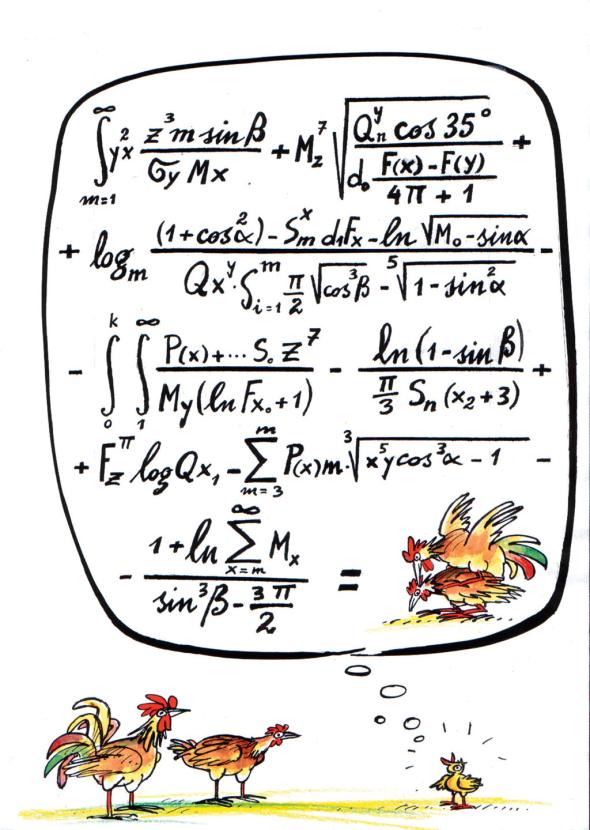 ∞ ∫ m=1 yx² (z³ m sin β)/(σy Mx) + M_z⁷ √((Qₙʸ cos 35°)/(d₀ (F(x) - F(y))/(4π + 1))) +
+ log_m ((1+cos²α) - Sₘˣ d₁Fx - ln √(M₀ - sinα))/(Qxʸ · S_{i=1}^m π/2 √(cos³β) - ⁵√(1 - sin²α)) -
- ∫₀ᵏ ∫₁^∞ (P(x) + ··· S₀ z⁷)/(My (ln Fx₀ + 1)) - (ln (1 - sin β))/(π/3 Sₙ (x₂ + 3)) +
+ F_z^π log Qx₁ - ∑_{m=3}^m P(x)m · ³√(x⁵y cos³α - 1) -
- (1 + ln ∑_{x=m}^∞ Mₓ)/(sin³β - 3π/2) =